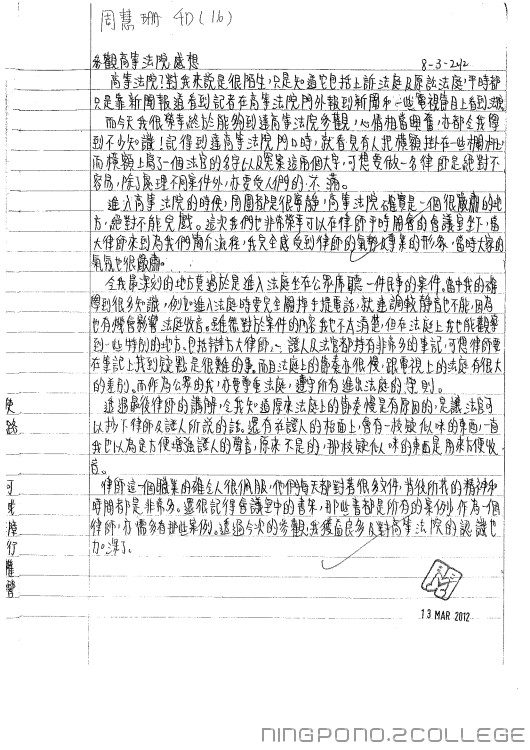 周慧珊 4D(16)
參觀高等法院感想 8-3-2012
高等法院?對我來說是很陌生,只是知道它包括上訴法庭及原訟法庭,平時都
只是靠新聞報道看到記者在高等法院門外報到新聞和一些電視節目上看到
而今天我很榮幸終於能夠到達高等法院參觀,心情相當興奮,亦都令我學
到不少知識!記得到達高等法院門口時,就看見有人把橫額掛在一些欄杆上
而橫額上寫了一個法官的名字以及冤案這兩個大字,可想要做一名律師是絕對不
容易,除了處理不同案件外,亦要受人們的不滿。
進入高等法院的時候,周圍都是很寧靜,高等法院確實是一個很嚴肅的地
方,絕對不能兒戲。這次我們也非常榮幸可以在律師平時開會的會議室坐下,當
大律師來到為我們簡介流程,我完全感受到律師的氣勢及專業的形象,當時大家的
氣氛也很嚴肅。
令我最深刻的地方莫過於是進入法庭坐在公眾席聽一件民事的案件。當中我的確
學到很多知識,例如進入法庭時要完全關掉手提電話,就連調較靜音也不能,因為
也有機會影響法庭收音。雖然對於案件的內容我也不太清楚,但在法庭上我也能觀察
到一些特別的地方,包括辯方大律師、證人及法官都持有非常多的筆記,可想律師要
在筆記上找到疑點是很難的事。而且法庭上的節奏亦很慢,跟電視上的法庭有很大
的差別。而作為公眾的我,亦要尊重法庭,遵守所有進出法庭的守則。
透過最後律師的講解,令我知道原來法庭上的節奏慢是有原因的,是讓法官可
以抄下律師及證人所說的話。還有在證人的枱面上,會有一枝疑似咪的東西,一直
我也以為是方便增強證人的聲音,原來不是的,那枝疑似咪的東西是用來方便收
音。
律師這一個職業的確令人很佩服,他們每天都對著很多文件,背後所花的精神和
時間都是非常多。還很記得會議室中的書架,那些書都是所有的案例,作為一個
律師,亦需多看那些案例。透過今次的參觀,我獲益良多及對高等法院的認識也
加深了。
13 MAR 2012
NINGPONO.2COLLEGE